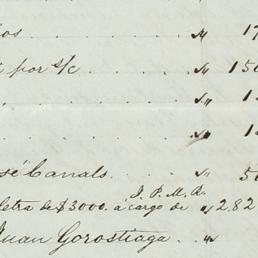 os . . . . . . . . . . . . " 17
por s/c . . . . . . . " 150
. . . . . . . . . . . . . . " 1
. . . . . . . . . . . . . . " 1
sé Canals . . . . . . " 50
J. P. M. R.
letra de $3000. á cargo de " 2.82
Juan Gorostiaga . . "